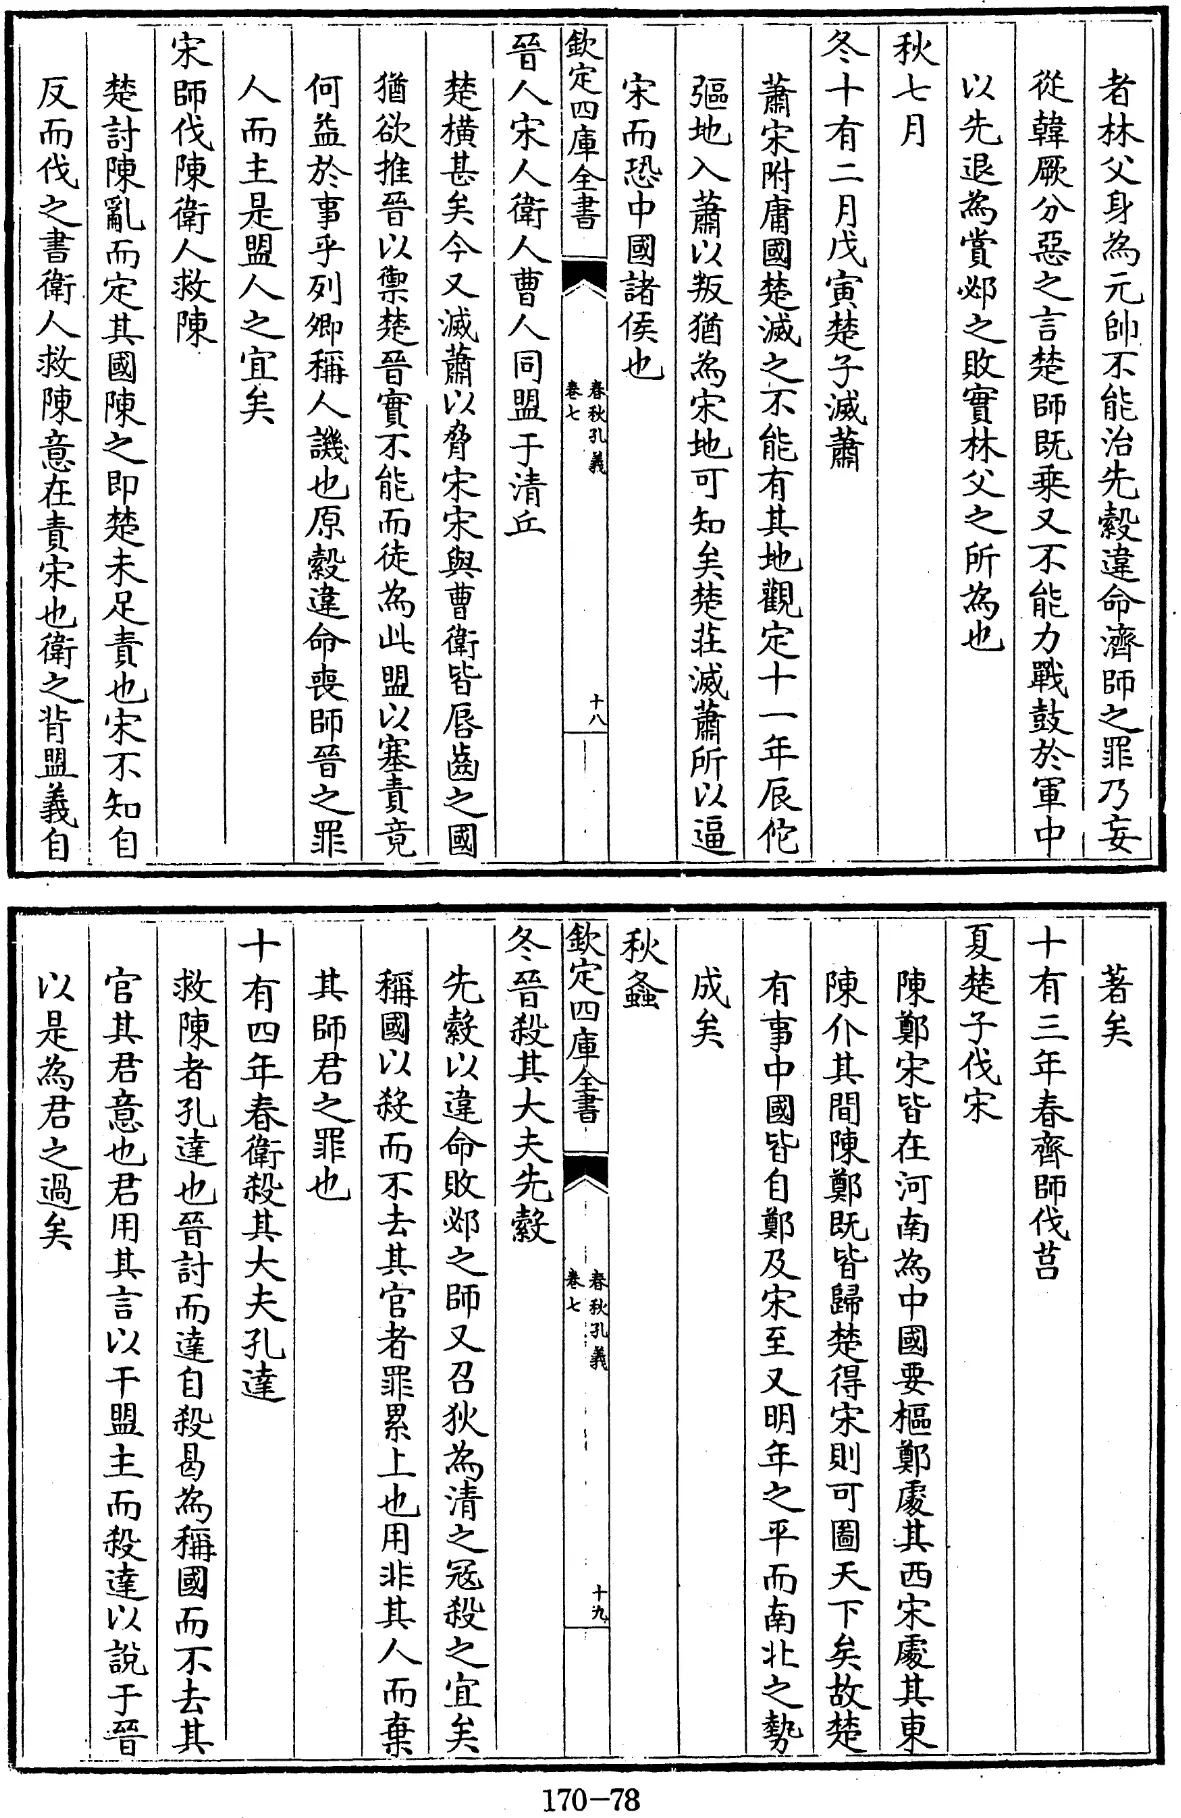 者林父身為元帥不能治先縠違命濟師之罪乃妄
從韓厥分惡之言楚師既乗又不能力戰鼓於軍中
以先退為賞邲之敗實林父之所為也
秋七月
冬十有二月戊寅楚子滅蕭
蕭宋附庸國楚滅之不能有其地觀定十一年辰佗
彄地入蕭以叛猶為宋地可知矣楚莊滅蕭所以逼
宋而恐中國諸侯也
欽定四庫全書
春秋孔義
卷七
十八
晉人宋人衛人曹人同盟于清丘
楚橫甚矣今又滅蕭以脅宋宋與曹衛皆唇齒之國
猶欲推晉以禦楚晉實不能而徒為此盟以塞責竟
何益於事乎列卿稱人譏也原縠違命喪師晉之罪
人而主是盟人之宜矣
宋師伐陳衛人救陳
楚討陳亂而定其國陳之即楚未足責也宋不知自
反而伐之書衛人救陳意在責宋也衛之背盟義自
著矣
十有三年春齊師伐莒
夏楚子伐宋
陳鄭宋皆在河南為中國要樞鄭處其西宋處其東
陳介其間陳鄭既皆歸楚得宋則可圖天下矣故楚
有事中國皆自鄭及宋至又明年之平而南北之勢
成矣
秋螽
欽定四庫全書
春秋孔義
卷七
十九
冬晉殺其大夫先縠
先縠以違命敗邲之師又召狄為清之冦殺之宜矣
稱國以殺而不去其官者罪累上也用非其人而棄
其師君之罪也
十有四年春衛殺其大夫孔達
救陳者孔達也晉討而達自殺曷為稱國而不去其
官其君意也君用其言以干盟主而殺達以說于晉
以是為君之過矣
170-78